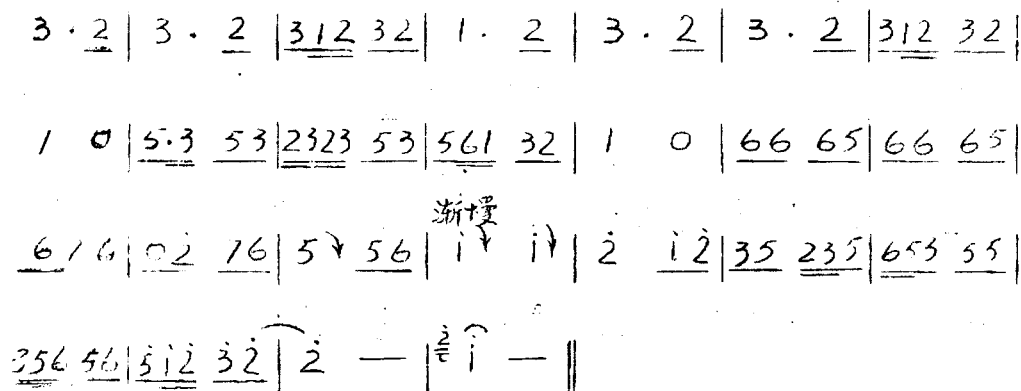 3 · 2 | 3 · 2 | 312 32 | 1 · 2 | 3 · 2 | 3 · 2 | 312 32 |
1 0 | 5·3 53 | 2323 53 | 561 32 | 1 0 | 66 65 | 66 65 |
渐慢
616 | 02̇ 16 | 5 56 | i i | 2̇ i2̇ | 35 235 | 653 55 |
356 56 | 5i2̇ 3̇2̇ | 2̇ — | 2̇ i — ‖